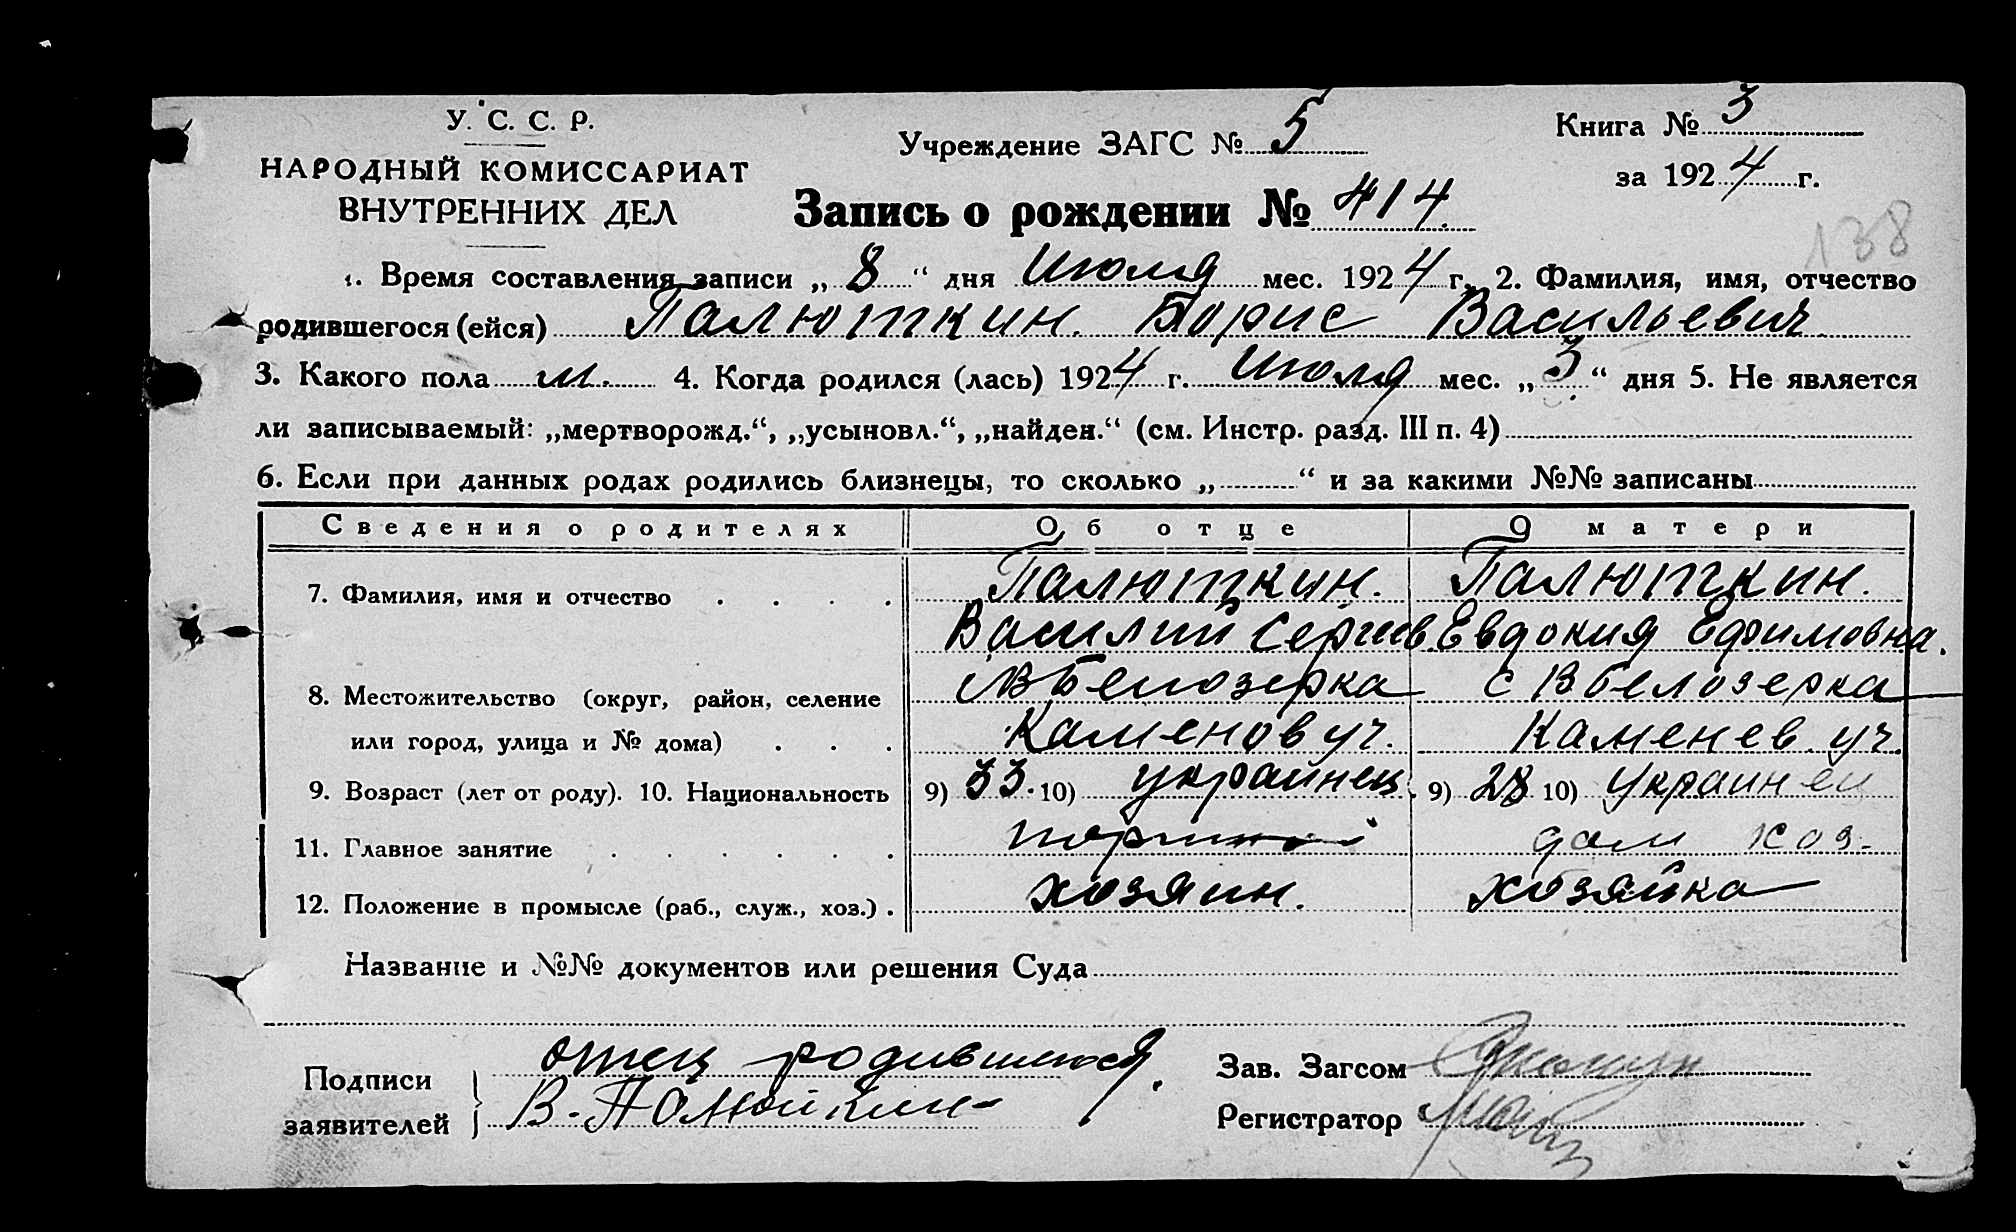 У. С. С. Р.
НАРОДНЫЙ КОМИССАРИАТ
ВНУТРЕННИХ ДЕЛ
Учреждение ЗАГС № 5
Книга № 3
за 1924 г.
Запись о рождении № 414.
138
1. Время составления записи „8“ дня Июля мес. 1924 г. 2. Фамилия, имя, отчество
родившегося (ейся) Палюткин. Борис Васильевич
3. Какого пола м. 4. Когда родился (лась) 1924 г. Июля мес. „3“ дня 5. Не является
ли записываемый: „мертворожд.“, „усыновл.“, „найден.“ (см. Инстр. разд. III п. 4)
6. Если при данных родах родились близнецы, то сколько „ “ и за какими №№ записаны
Сведения о родителях Об отце О матери
7. Фамилия, имя и отчество Палюткин. Палюткин.
Василий Сергиев. Евдокия Ефимовна.
8. Местожительство (округ, район, селение В Белозерка с В белозерка
или город, улица и № дома) Каменов уч. Каменев. уч.
9. Возраст (лет от роду). 10. Национальность 9) 33. 10) украинец. 9) 28 10) Украинец
11. Главное занятие портной дом хоз.
12. Положение в промысле (раб., служ., хоз.) . хозяин. хозяйка
Название и №№ документов или решения Суда
Подписи
заявителей
отец родившегося.
В.
Зав. Загсом
Регистратор